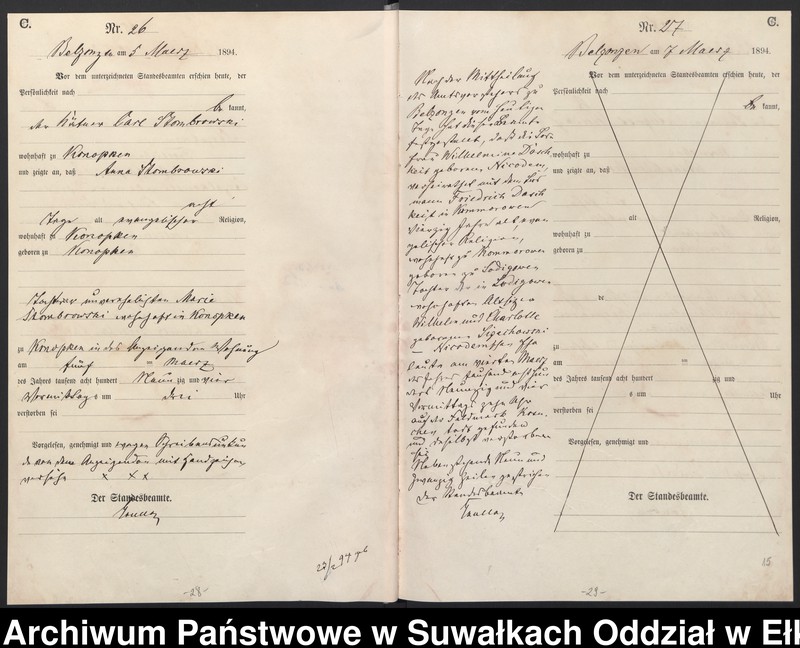 C.
Nr. 26
Belzonzen am 5 Maerz 1894.
Vor dem unterzeichneten Standesbeamten erschien heute, der
Persönlichkeit nach
be kannt,
der Kätner Carl Skombrowski
wohnhaft zu Konopken
und zeigte an, daß Anna Skombrowski
acht
Tage alt evangelischer Religion,
wohnhaft zu Konopken
geboren zu Konopken
Tochter der unverehelichten Marie
Skombrowski wohnhaft in Konopken
zu Konopken in des Anzeigenden Wohnung
am fünf ten Maerz
des Jahres tausend acht hundert Neun zig und vier
Vormittags um drei Uhr
verstorben sei
Vorgelesen, genehmigt und wegen Schreibensunkun
de von dem Anzeigenden mit Handzeichen
versehen x x x
Der Standesbeamte.
-28-
Nr. 27
C.
Belzonzen am 7 Maerz 1894.
Vor dem unterzeichneten Standesbeamten erschien heute, der
Persönlichkeit nach
be kannt,
wohnhaft zu
und zeigte an, daß
alt Religion,
wohnhaft zu
geboren zu
de
zu
am ten
des Jahres tausend acht hundert zig und
s um Uhr
verstorben sei
Vorgelesen, genehmigt und
Der Standesbeamte.
Nach der Mittheilung
des Amtsvorstehers zu
Belzonzen vom heutigen
Tage hat dieser Beamte
festgestellt, daß die
frau Wilhelmine
keit geborene Nicodem,
verheirathet mit dem
mann Friedrich
keit in Kommorowen
vierzig Jahre alt, evan
gelischer Religion,
wohnhaft zu Kommorowen
geboren zu
Tochter der in
wohnhaften Altsitzer
Wilhelm und Charlotte
geborenen
Nicodemschen Ehe
leute am vierten Maerz
des Jahres tausend acht hun
dert Neunzig und vier
Vormittags zehn Uhr
auf der Feldmark
todt gefunden
und daselbst verstorben
sei
Nebenstehende Neun und
zwanzig Zeilen gestrichen
Der Standesbeamte
-29-
15
Archiwum Państwowe w Suwałkach Oddział w Ełk